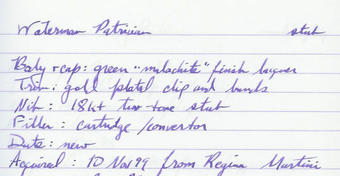 Waterman Patrician stub
Body + cap: green "malachite" finish lacquer
Trim: gold plated clip and bands
Nib: 18kt two-tone stub
Filler: cartridge/convertor
Date: new
Acquired: 10 Nov 99 from Regina Martini